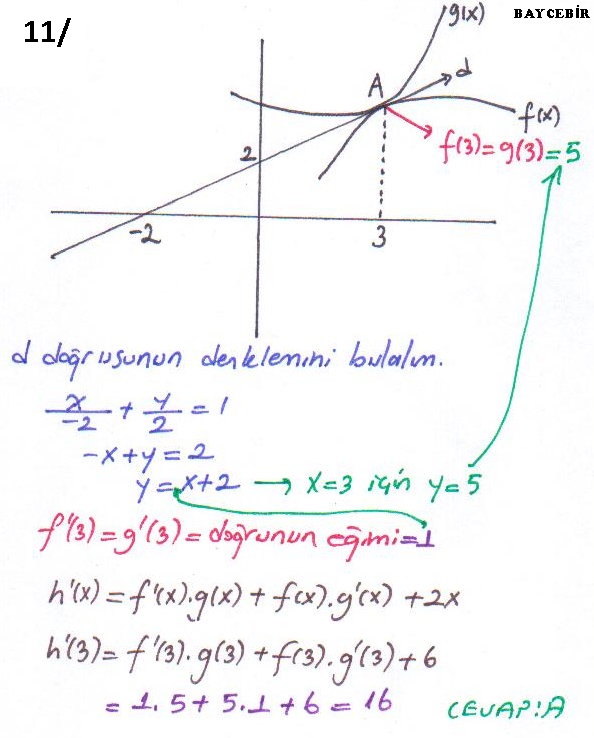 11/
BAYCEBİR
g(x)
d
A
f(x)
f(3)=g(3)=5
2
-2
3
d doğrusunun denklemini bulalım.
x/-2 + y/2 = 1
-x+y=2
y=x+2 → x=3 için y=5
f'(3)=g'(3)=doğrunun eğimi=1
h'(x)=f'(x).g(x)+f(x).g'(x)+2x
h'(3)=f'(3).g(3)+f(3).g'(3)+6
=1.5+5.1+6=16
CEVAP:A